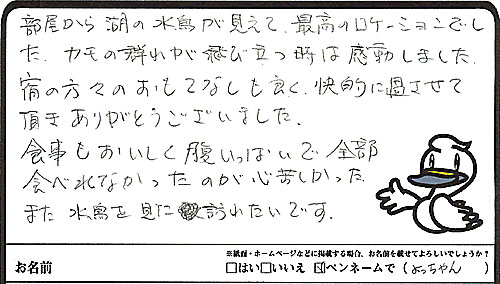 部屋から湖の水鳥が見えて、最高のロケーションでし
た。カモの群れが飛び立つ時は感動しました。
宿の方々のおもてなしも良く、快的に過させて
頂きありがとうございました。
食事もおいしく腹いっぱいで全部
食べれなかったのが心苦しかった
また水鳥を見に訪れたいです。
※紙面・ホームページなどに掲載する場合、お名前を載せてよろしいでしょうか？
お名前 □はい□いいえ ☑ペンネームで（よっちゃん）